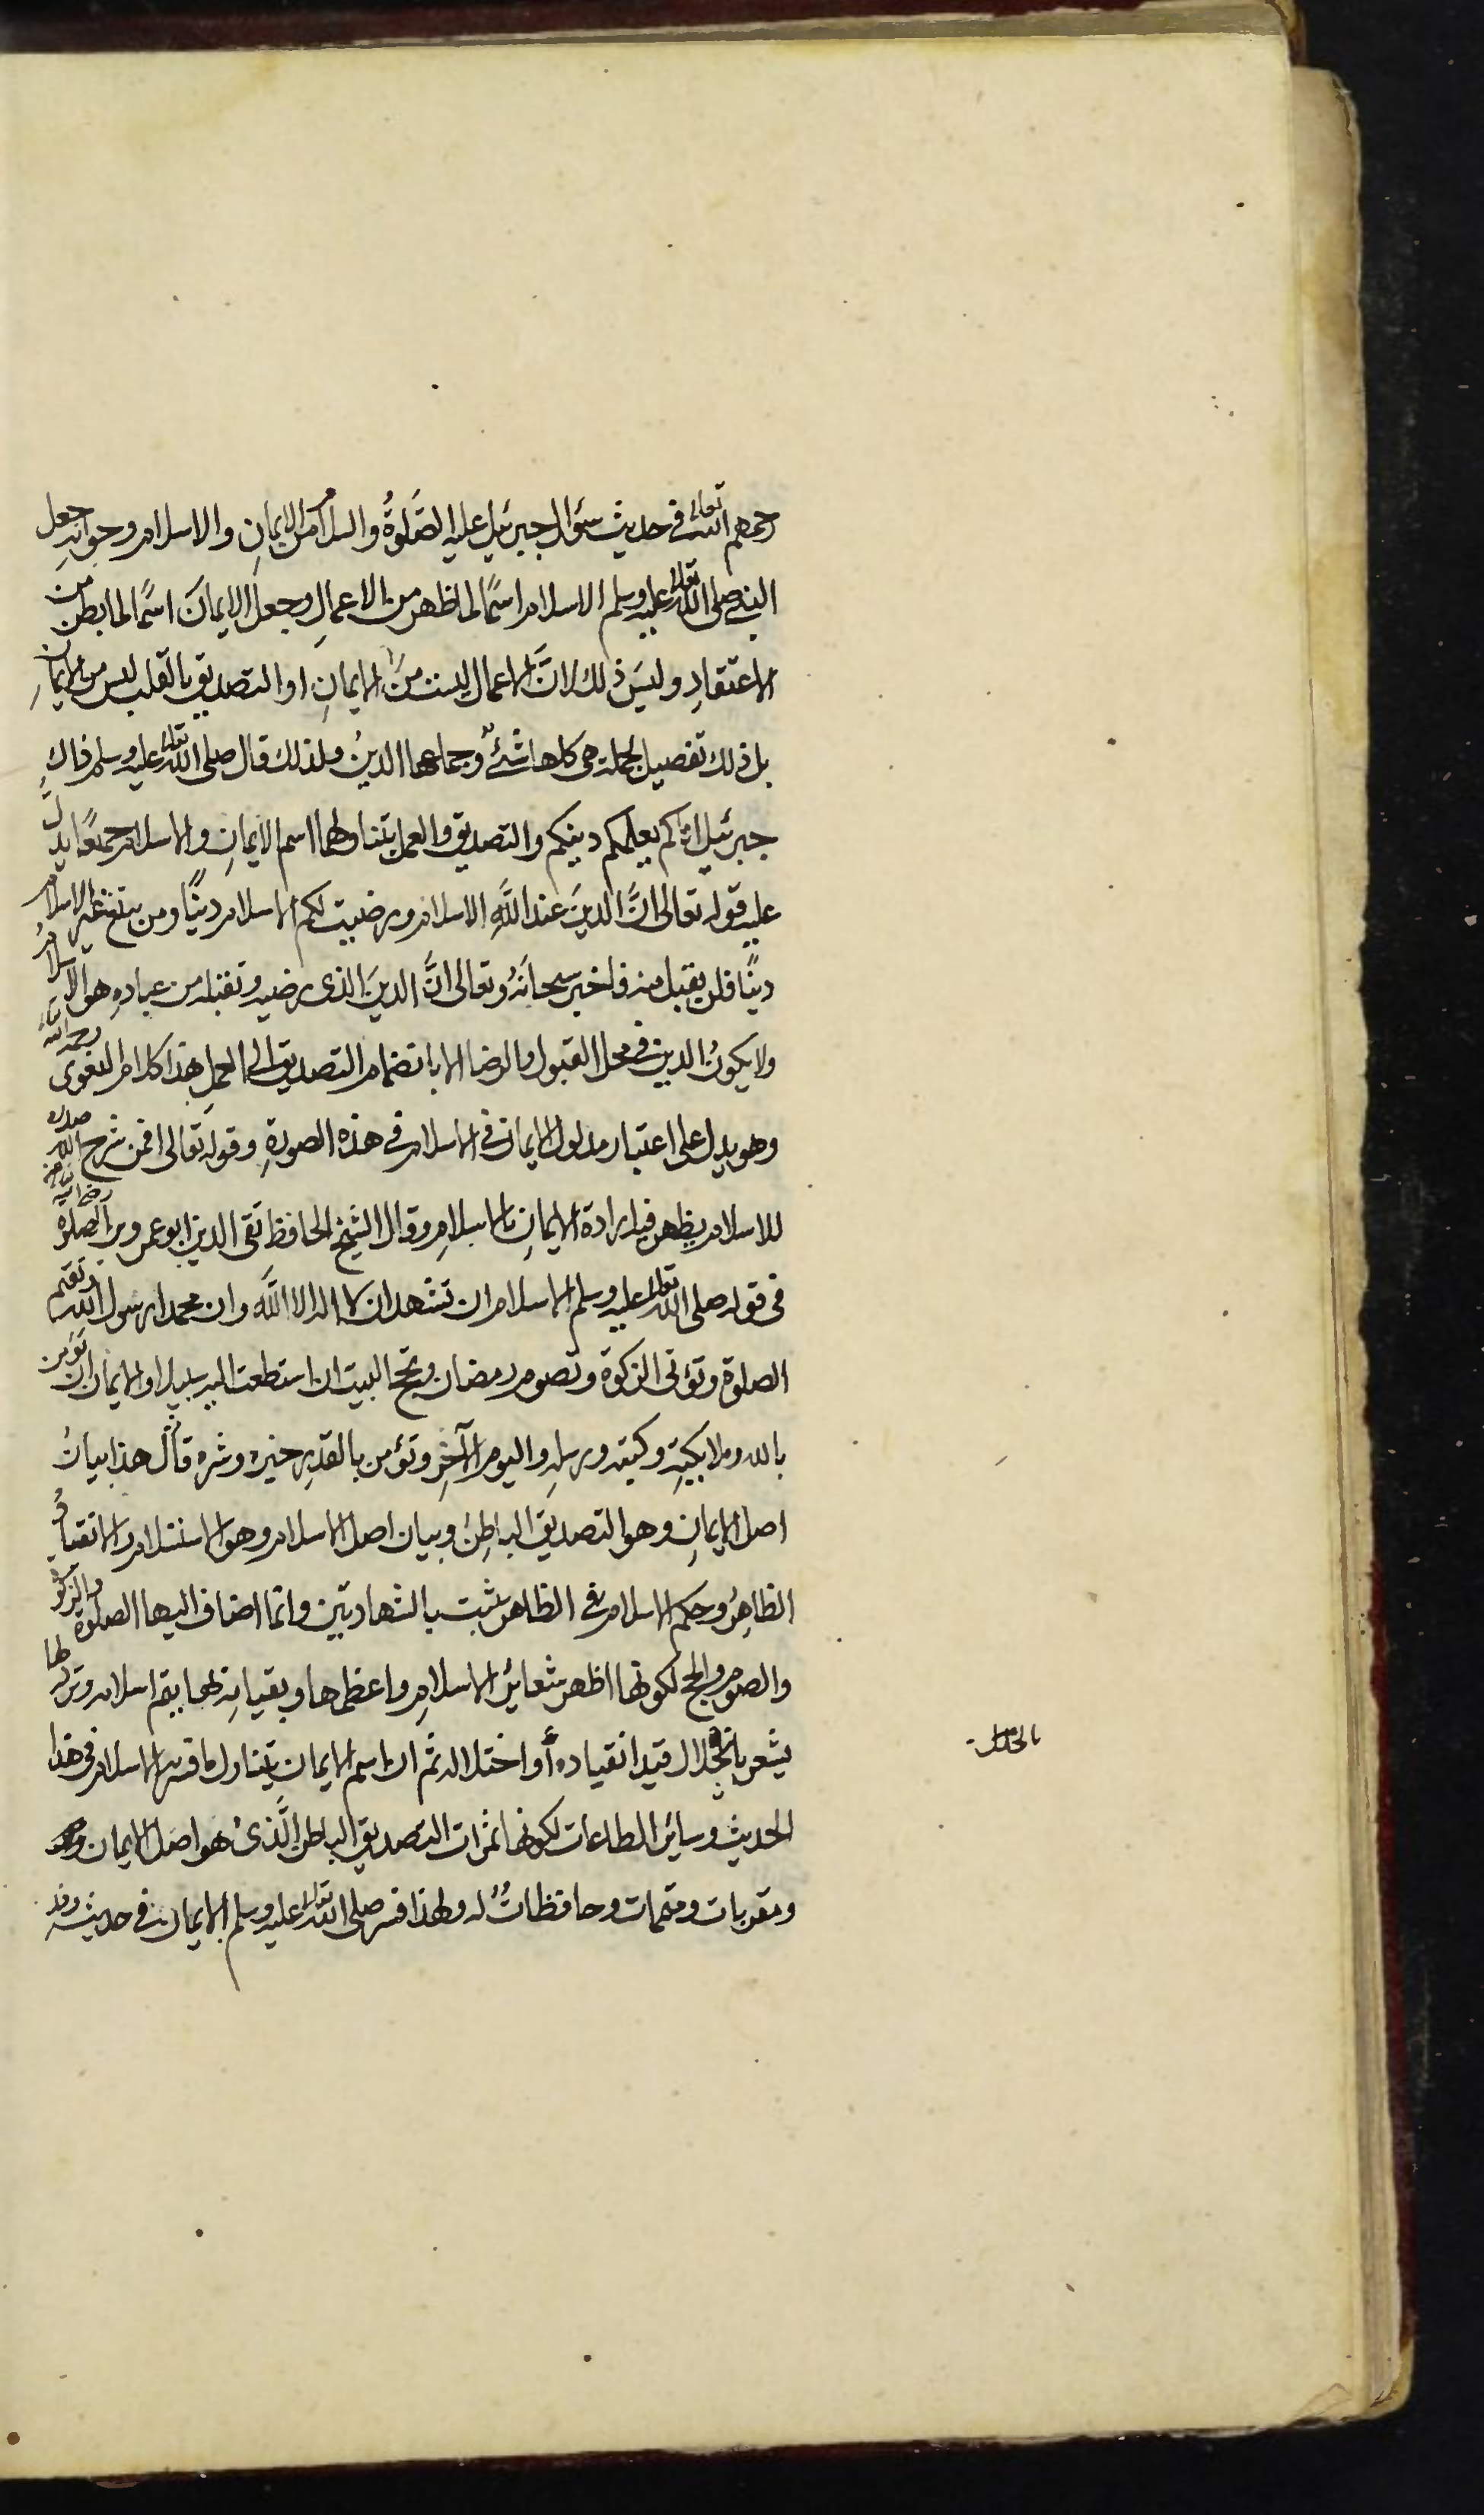 رحمهم الله تعالى في حديث سؤال جبرئيل عليه الصَّلوةُ والسلام عن الايمانِ والاسلام وجوابه جعل
النبي صلى الله تعالى عليه وسلم الاسلام اسمًا لما ظهر من الاعمالِ وجعل الايمانَ اسمًا لما بطن من
الاعتقادِ وليسَ ذلك لانَّ الاعمال ليست منَ الايمانِ او التصديق بالقلب ليس من الايمانِ
بل ذلك تفصيل لجملة هي كلها شئٌ وجماعها الدينُ ولذلك قال صلى الله تعالى عليه وسلم ذاكِ
جبرئيل اتاكم يعلمكم دينكم والتصديق والعمل يتناولهما اسم الايمانِ والاسلام جميعًا يدلُّ
عليه قوله تعالى انَّ الدينَ عند اللهِ الاسلام ورضيت لكم الاسلام دينًا ومن يبتغ غير الاسلام
دينًا فلن يقبل منه فاخبر سبحانَهُ وتعالى انَّ الدينَ الذى رضيه وتقبله من عبادهِ هو الاسلامُ
ولا يكونُ الدين في محل القبول والرضا الا بانضمام التصديق الى العملِ هذا كلام البغوى رحمه الله تعالى
وهو يدل على اعتبار مدلول الايمان في الاسلام في هذه الصورةِ وقوله تعالى افمن شرح الله صدره
للاسلام يظهر فيه ارادة الايمانِ بالاسلامِ وقال الشيخ الحافظ تقى الدين ابو عمرو بن الصلاح رضى الله تعالى عنه
في قوله صلى الله تعالى عليه وسلم الاسلام ان تشهد ان لا اله الا اللهَ وان محمدا رسول الله وتقيم
الصلوة وتؤتى الزكوة وتصوم رمضان وتحج البيت ان استطعت اليه سبيلا والايمان ان تؤمن
بالله وملايكتِهِ وكتبه ورسلِهِ واليوم الآخِرِ وتؤمن بالقدرِ خيره وشره قال هذا بيانُ
اصل الايمانِ وهو التصديق الباطِن وبيان اصل الاسلام وهو الاستسلام والانقيادُ
الظاهِرُ وحكم الاسلام في الظاهر يثبت بالشهادتين وانما اضاف اليهما الصلوة والزكوة
والصوم والحج لكونها اظهر شعائر الاسلامِ واعظمها وبقيامِهِ بها يتم اسلامه وتركه لها
يشعر بانحلال قيد انقياده أو اختلاله ثم ان اسم الايمان يتناول ما فسر به الاسلام في هذا
الحديث وسائر الطاعات لكونها ثمرات التصديق الباطن الَّذىُ هو اصل الايمان
ومقويات ومتممات وحافظاتٌ له ولهذا فسر صلى الله تعالى عليه وسلم الايمان في حديث وفد